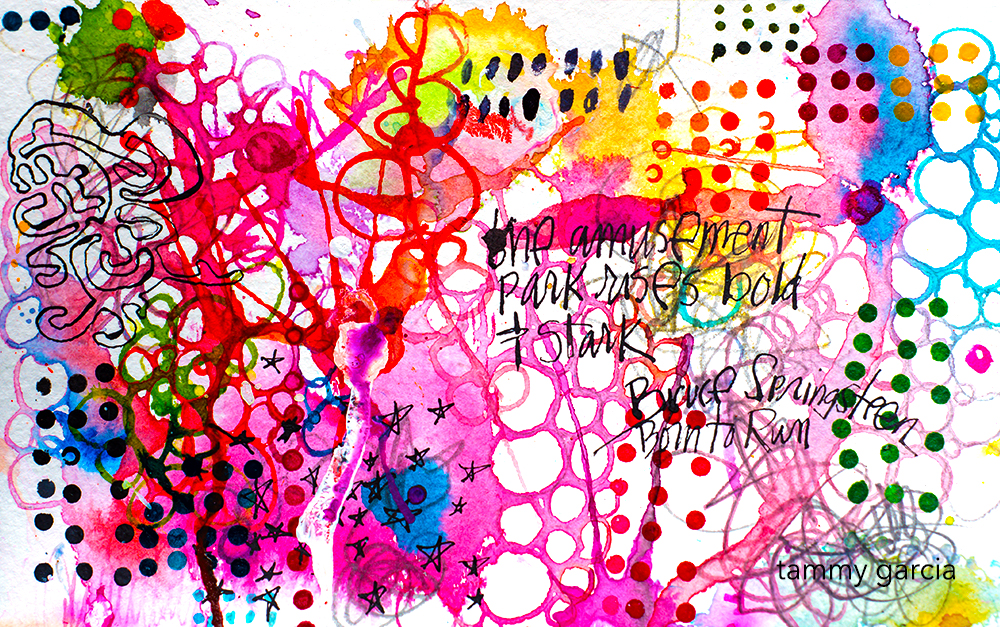 the amusement
park rises bold
+ stark
Bruce Springsteen
Born to Run
tammy garcia